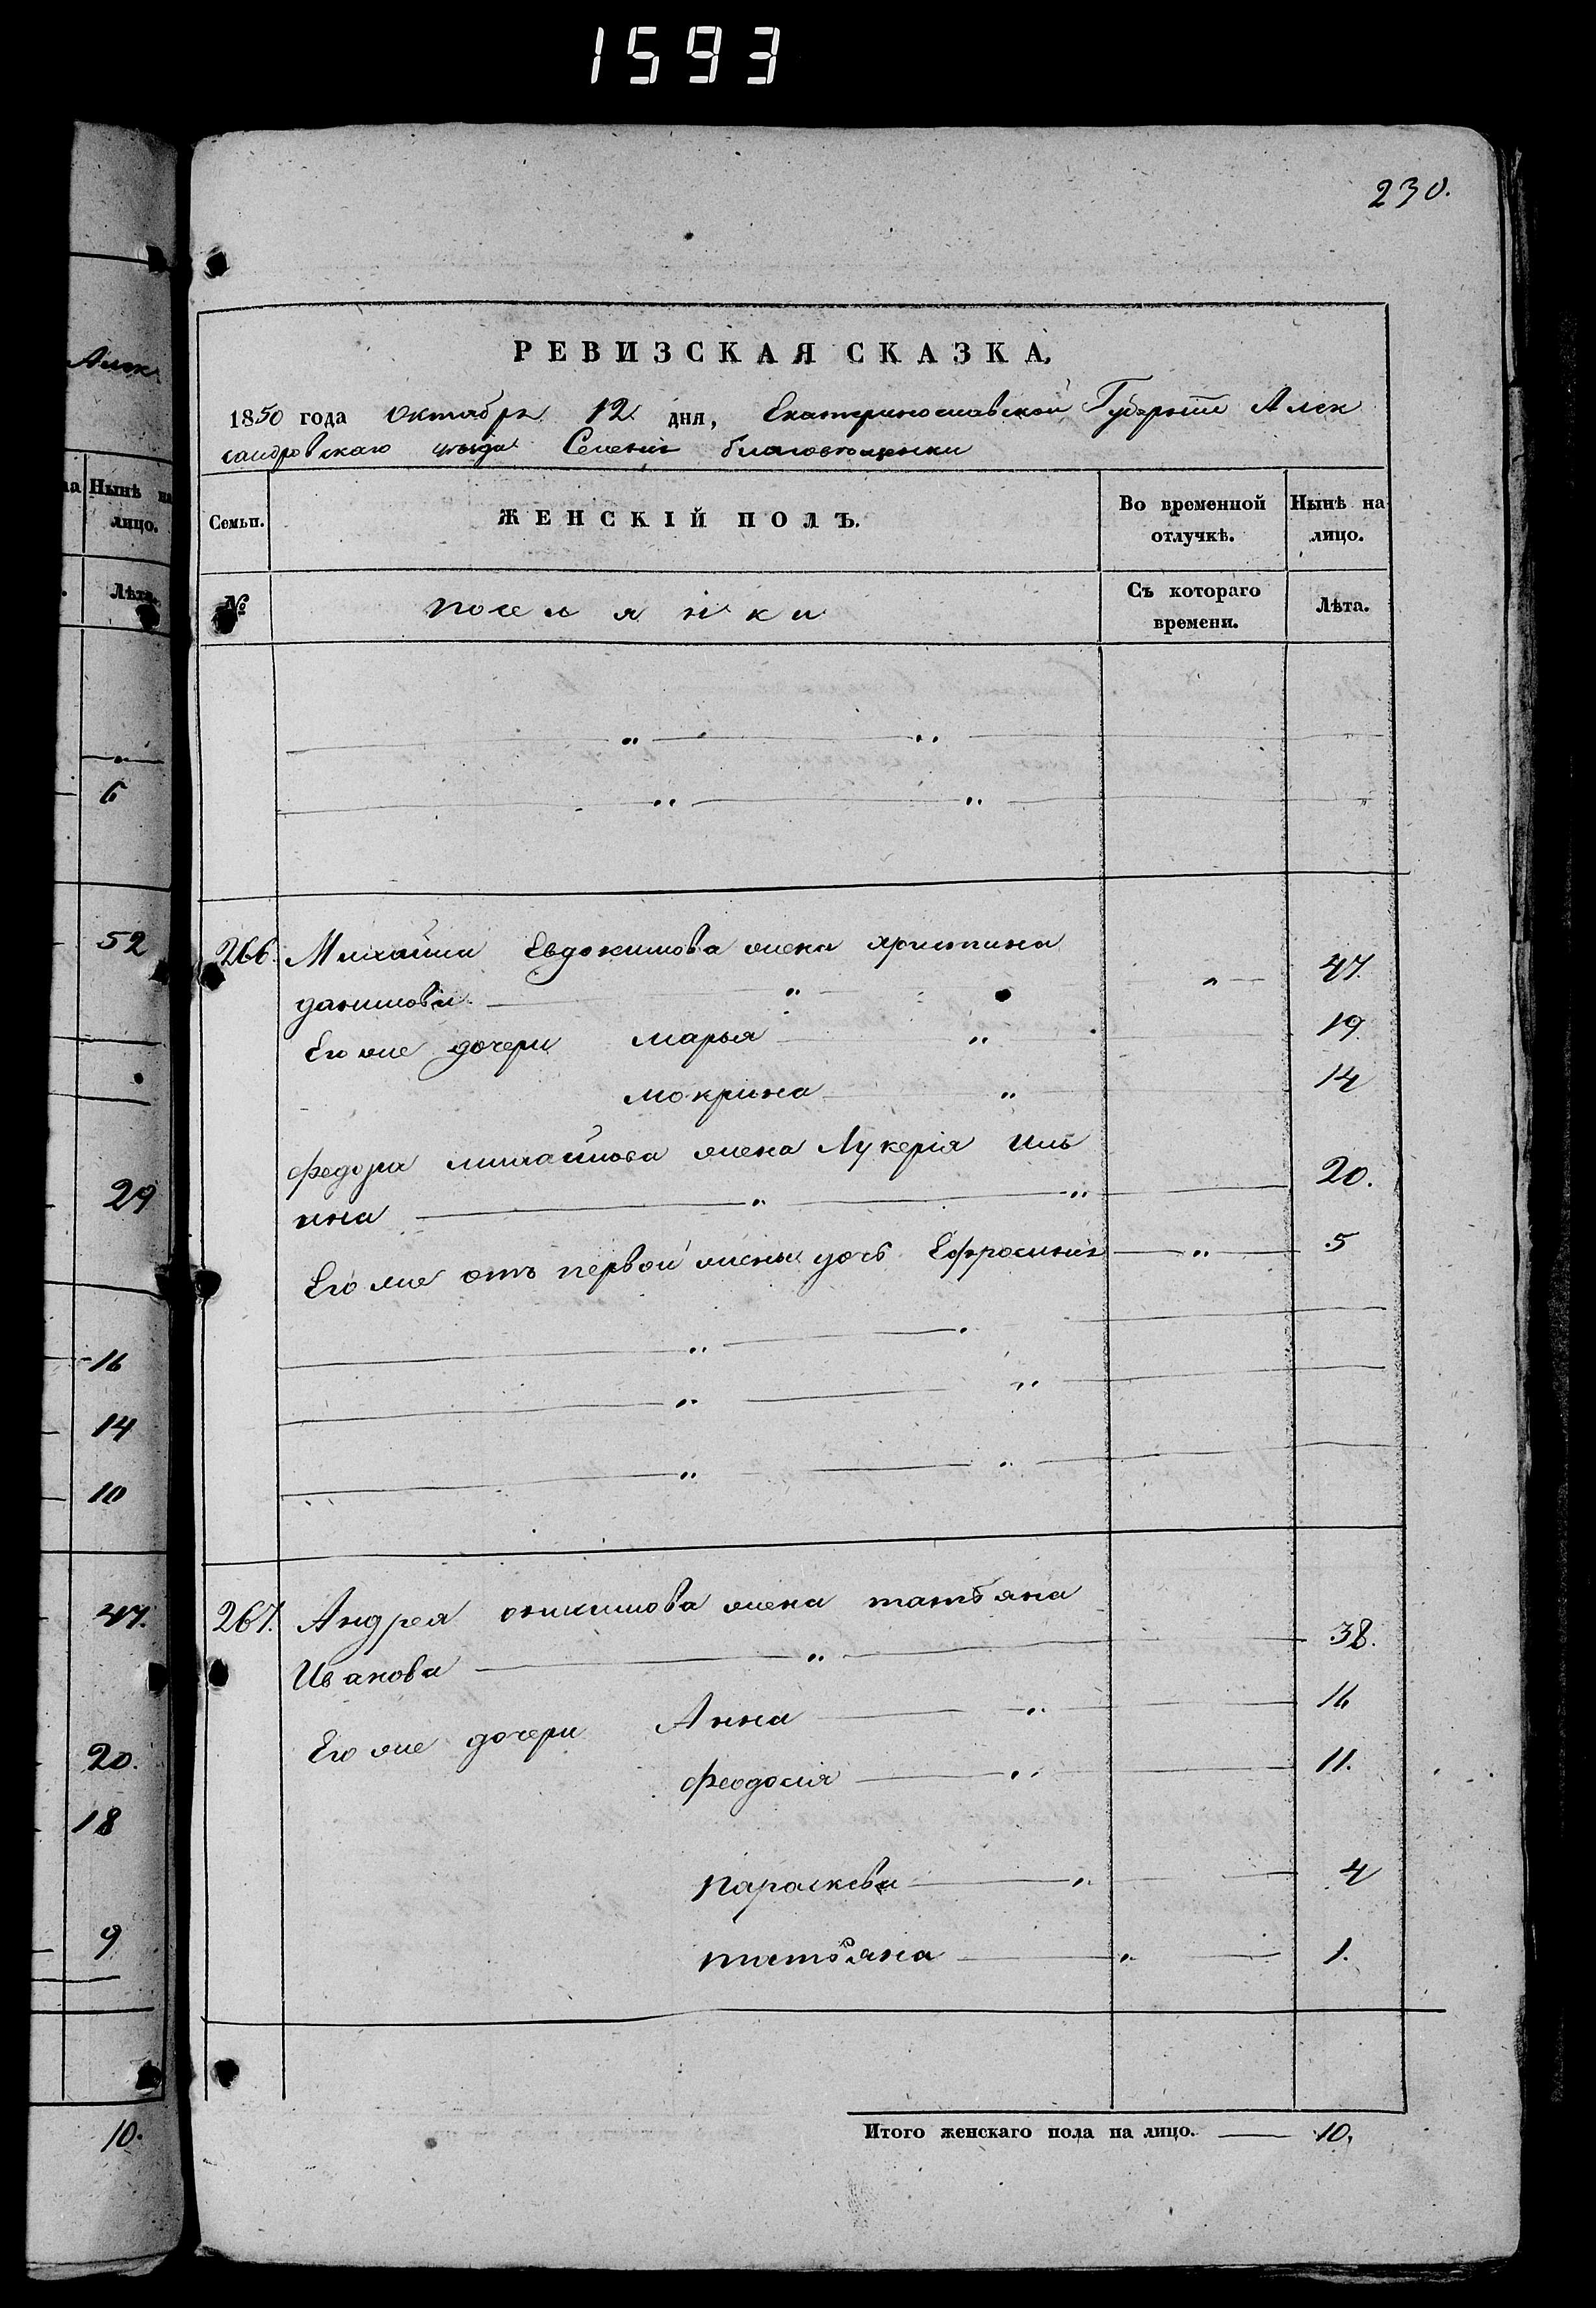 1593
230.
Алек
Нынѣ на
лицо.
Лѣта.
6
52
29
16
14
10
47.
20.
18
9
10.
РЕВИЗСКАЯ СКАЗКА,
1850 года Октября 12 дня, Екатеринославской Губернiи Алек
сандровскаго уѣзда Селенiя благовѣщенки
Семьи. ЖЕНСКІЙ ПОЛЪ. Во временной отлучкѣ. Нынѣ на лицо.
№ поселянки Съ котораго времени. Лѣта.
266. Михайла Евдокимова жена христина
данилова 47.
Его же дочери марья 19.
мокрина 14
федора михайлова жена Лукерiя Иль
ина 20.
Его же отъ первой жены дочь Ефросинiя 5
267. Андрея жена татьяна
Иванова 38.
Его же дочери Анна 16
феодосiя 11.
параскева 4
татьяна 1.
Итого женскаго пола на лицо. 10.